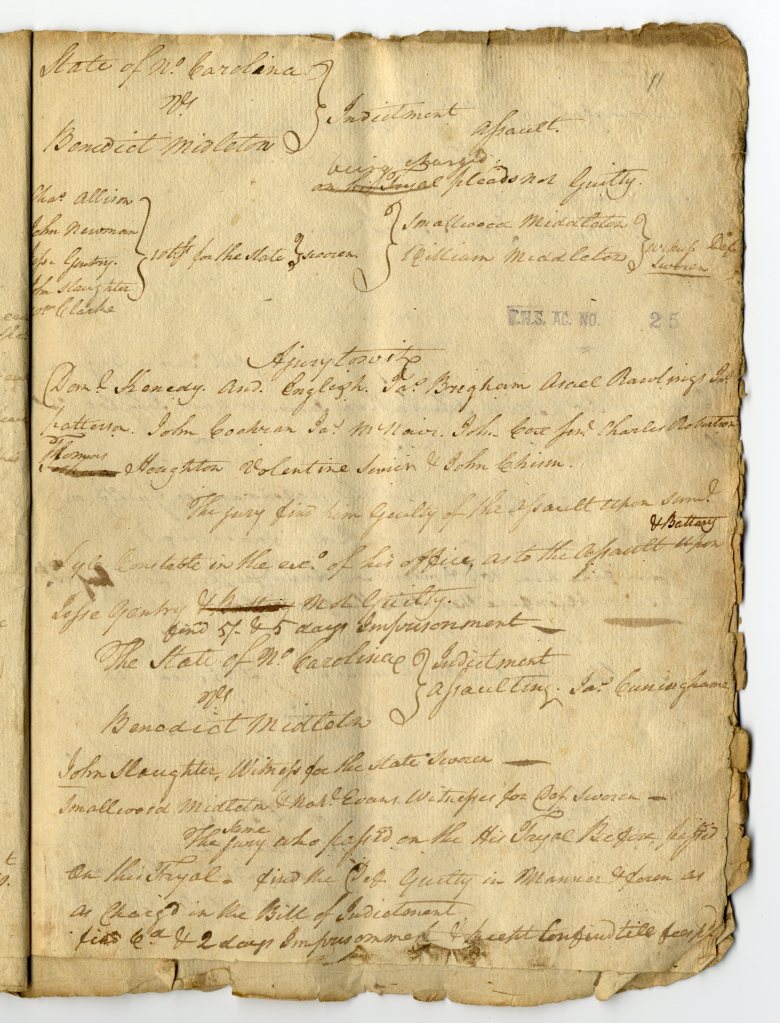 11
State of No. Carolina
vs
Benedict Midleton
Indictment
Assault.
being charged
on his Tryal pleads not Guilty.
Chas. Allison
John Newman
Jesse Gentry.
John Slaughter
Wm Clarke
for the State
sworen
Smallwood Middleton
William Middleton
Sworen
T.H.S. AC. NO. 25
A jury towit
Domk. Kenedy. And. English. Jas. Brigham Asael Rawlings
Patterson. John Cochran Jas. McNair. John Cox Senr. Charles Robertson
Thomas
Houghton Volentine Sevier & John Chism.
The jury find him Guilty of the Assault upon Saml.
& Battary
Lyle Constable in the exc. of his office, as to the Assault upon
Jesse Gentry & Not Guilty.
find 5/. & 5 days Imprisonment
The State of No. Carolina
vs
Benedict Midleton
Indictment
Assaulting. Jas. Cuningham
John Slaughter, Witness for the State Sworen
Smallwood Midleton & Evans Witnesses for Deft. Sworen
Same
The jury who passed on the His Tryal Before, passed
On this Tryal. find the Deft Guilty in Manner & foren as
as Charg'd in the Bill of Indictment
find 6d & 2 days Imprisonment & kept Confind till fees